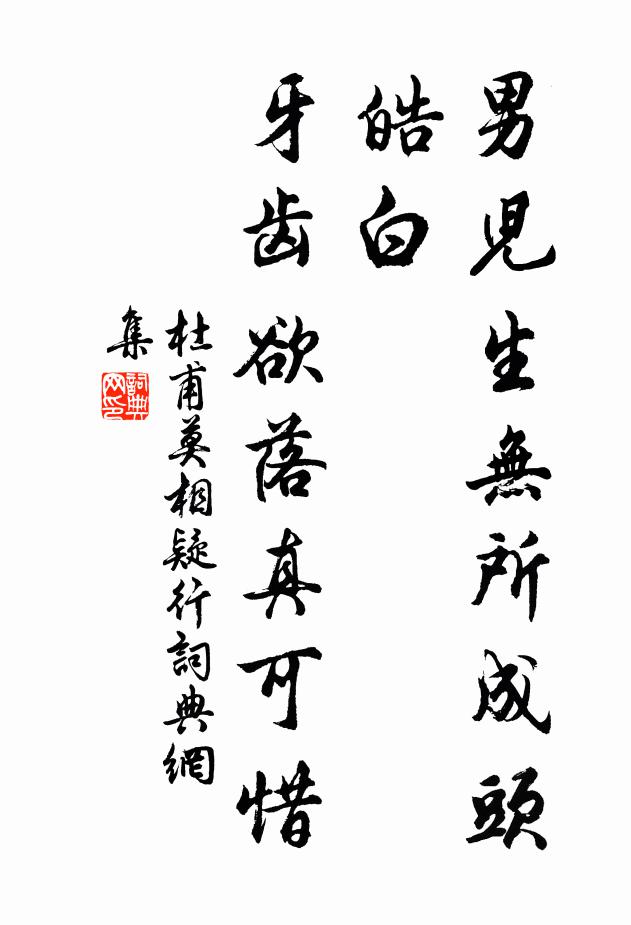 男児生無所成頭
皓白
牙歯欲落真可惜
杜甫莫相疑行詞典網
集
詞典
网印